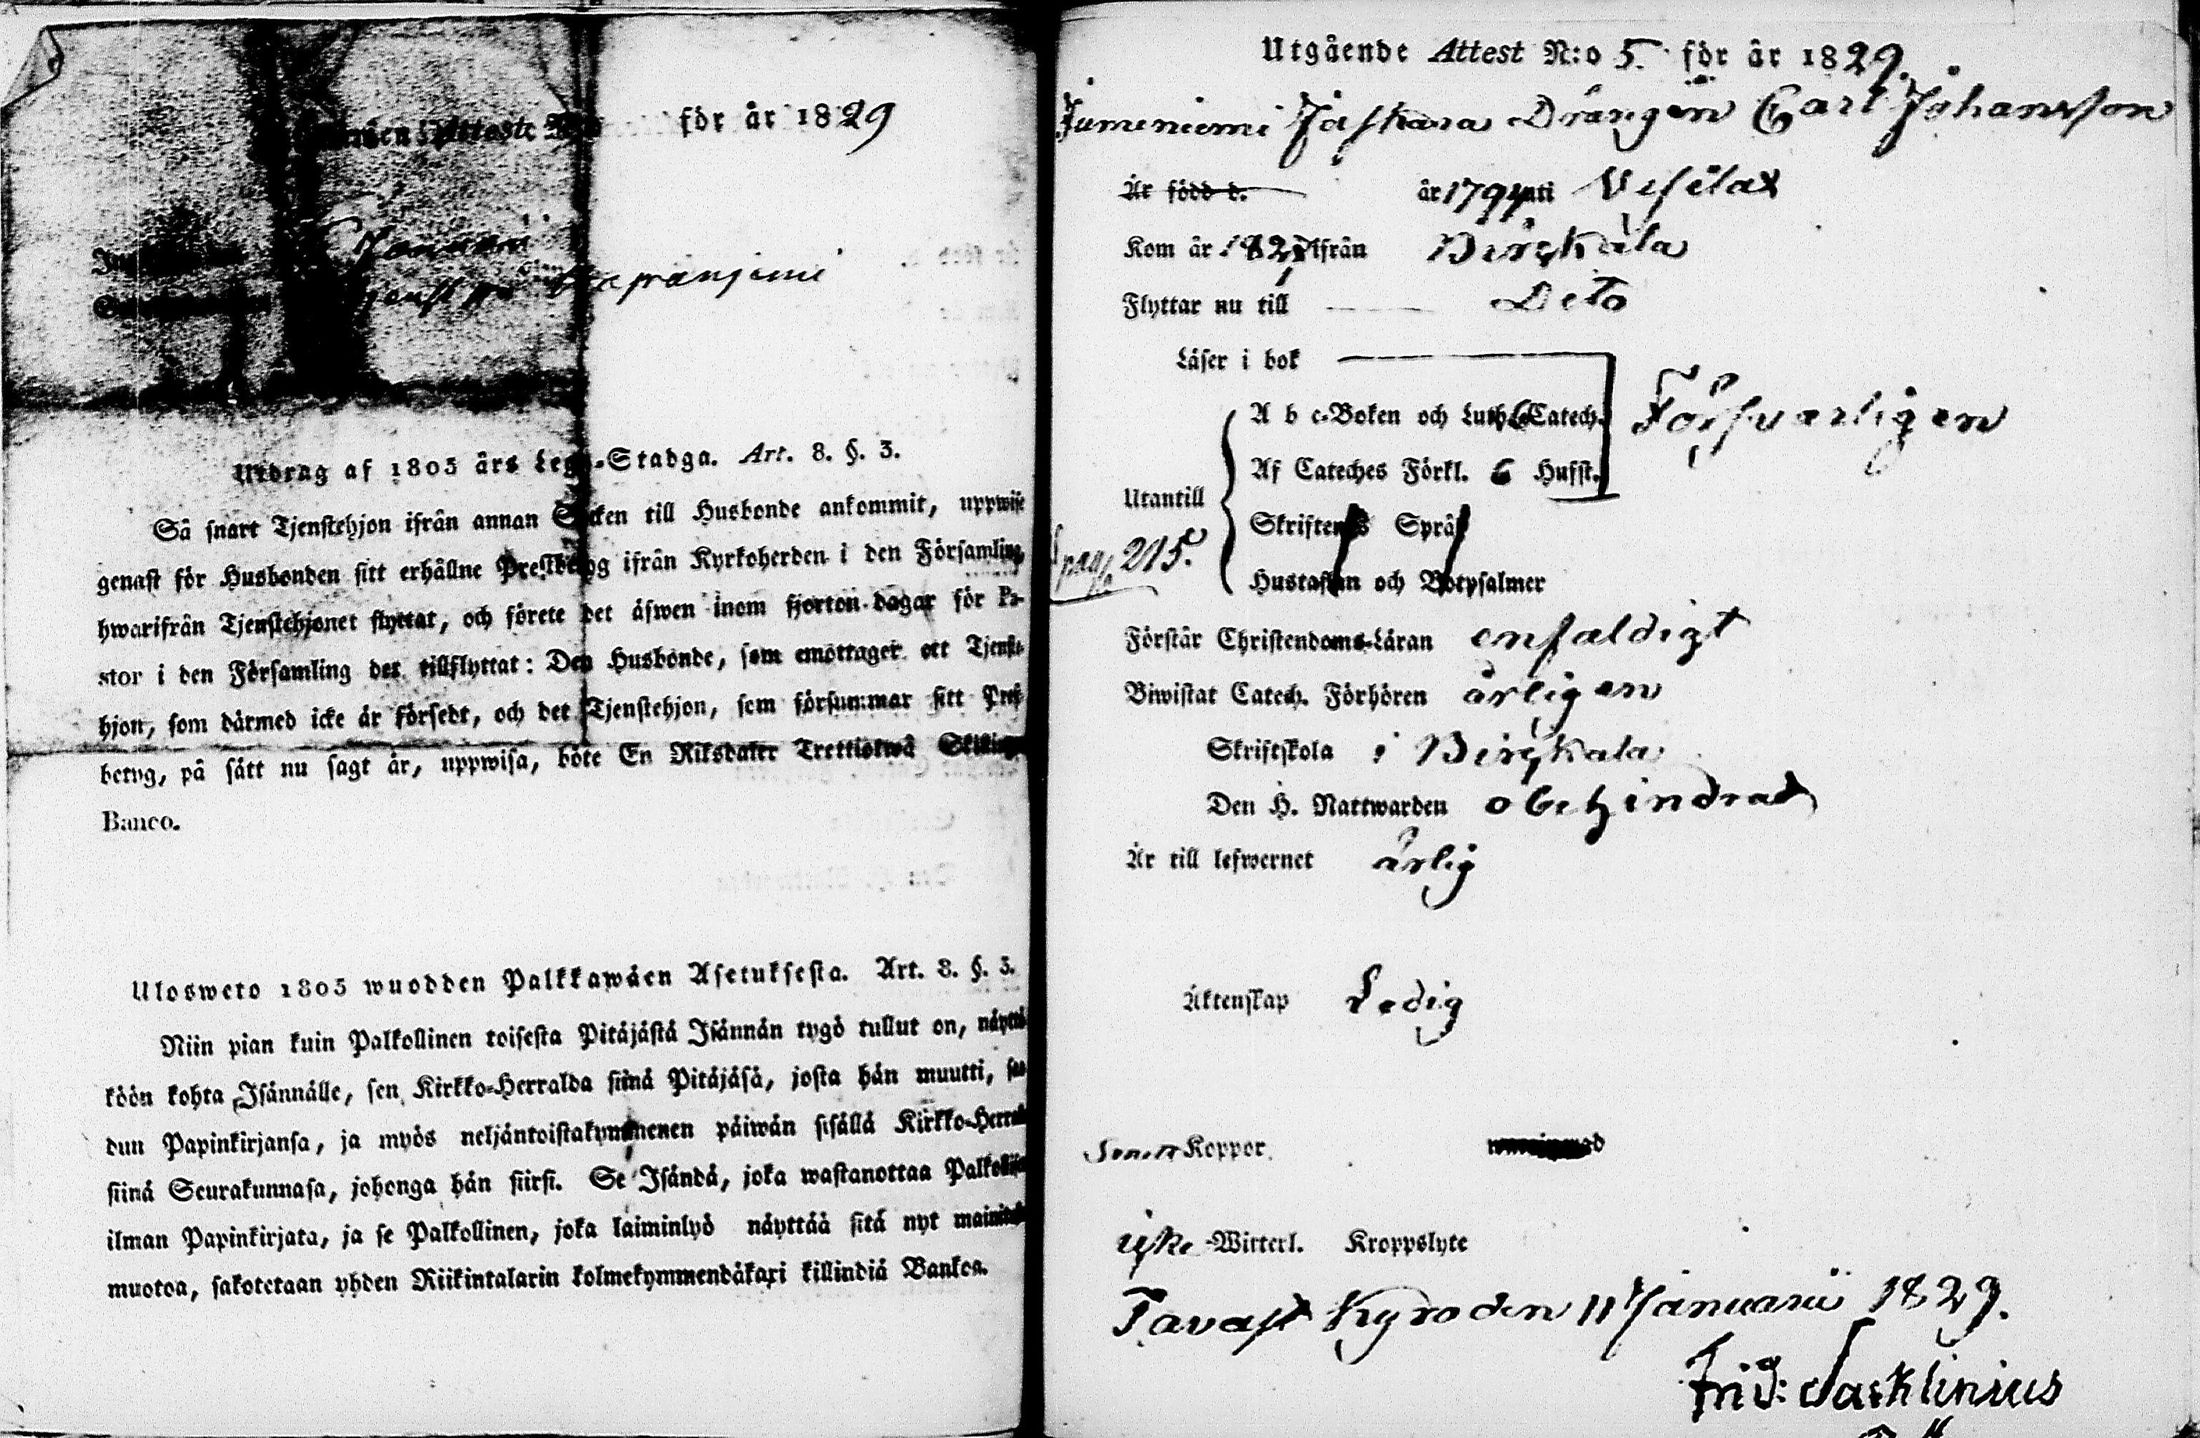 för år 1829
Januarii
Utdrag af 1805 års Lego-Stadga. Art. 8. §. 3.
Så snart Tjenstehjon ifrån annan Socken till Husbonde ankommit, uppwise
genast för Husbonden sitt erhållne Prestbetyg ifrån Kyrkoherden i den Församling,
hwarifrån Tjenstehjonet flyttat, och förete det äfwen inom fjorton dagar för Pa-
stor i den Församling det tillflyttat: Den Husbonde, som emottager ett Tjenste-
hjon, som därmed icke är försedt, och det Tjenstehjon, som försummar sitt Prest-
betyg, på sätt nu sagt är, uppwisa, böte En Riksdaler Trettiotwå Skillingar
Banco.
Ulosweto 1805 wuodden Palkkawäen Asetuksesta. Art. 8. §. 3.
Niin pian kuin Palkollinen toisesta Pitäjästä Isännän tygö tullut on, näyttä-
köön kohta Isännälle, sen Kirkko-Herralda siinä Pitäjäsä, josta hän muutti, saa-
dun Papinkirjansa, ja myös neljäntoistakymmenen päiwän sisällä Kirkko-Herralle
siinä Seurakunnasa, johonga hän siirsi. Se Isändä, joka wastanottaa Palkollisen
ilman Papinkirjata, ja se Palkollinen, joka laiminlyö näyttää sitä nyt mainitulla
muotoa, sakotetaan yhden Riikintalarin kolmekymmendäkaxi killindiä Bankoa.
Utgående Attest N:o 5. för år 1829.
Jumeniemi Jaskara Drängen Carl Johansson
Är född d. år 1794 uti Vesilax
Kom år ifrån Birgkala
Flyttar nu till Dito
Läser i bok
A b c-Boken och Luth. Catech. Försvarligen
Af Cateches Förkl. 6 Husst.
Utantill
Skriftenes Språk
pag. 215.
Hustaflan och Botpsalmer
Förstår Christendoms-Läran enfaldigt
Biwistat Catech. Förhören årligen
Skriftskola i Birgkala
Den H. Nattwarden obehindrad
Är till lefwernet ärlig
Äktenskap Ledig
Koppor
Witterl. Kroppslyte
Tavast Kyro den 11 Januarii 1829.
Frid: Sacklinius